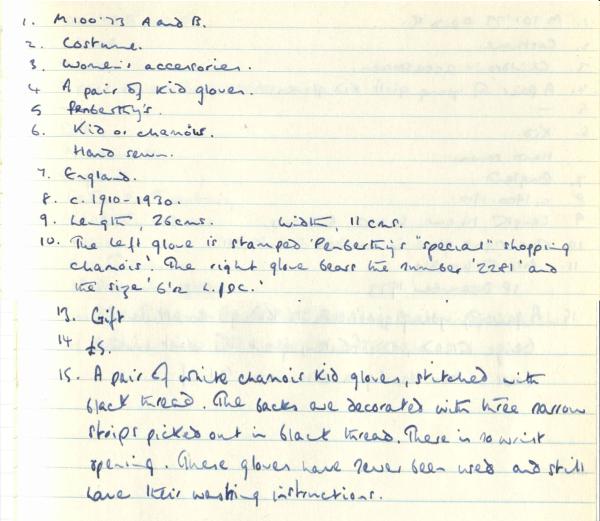 1. M100'73 A and B.
2. Costume.
3. Women's accessories.
4 A pair of kid gloves.
5 Penberthy's.
6. Kid or chamois.
Hand sewn.
7. England.
8. c. 1910-1930.
9. Length, 26cms. Width, 11 cms.
10. The left glove is stamped 'Penberthy's "special" shopping
chamois'. The right glove bears the number '2281' and
the size '6¼
13. Gift
14 £5.
15. A pair of white chamois kid gloves, stitched with
black thread. The backs are decorated with three narrow
strips picked out in black thread. There is no wrist
opening. These gloves have never been used and still
have their washing instructions.